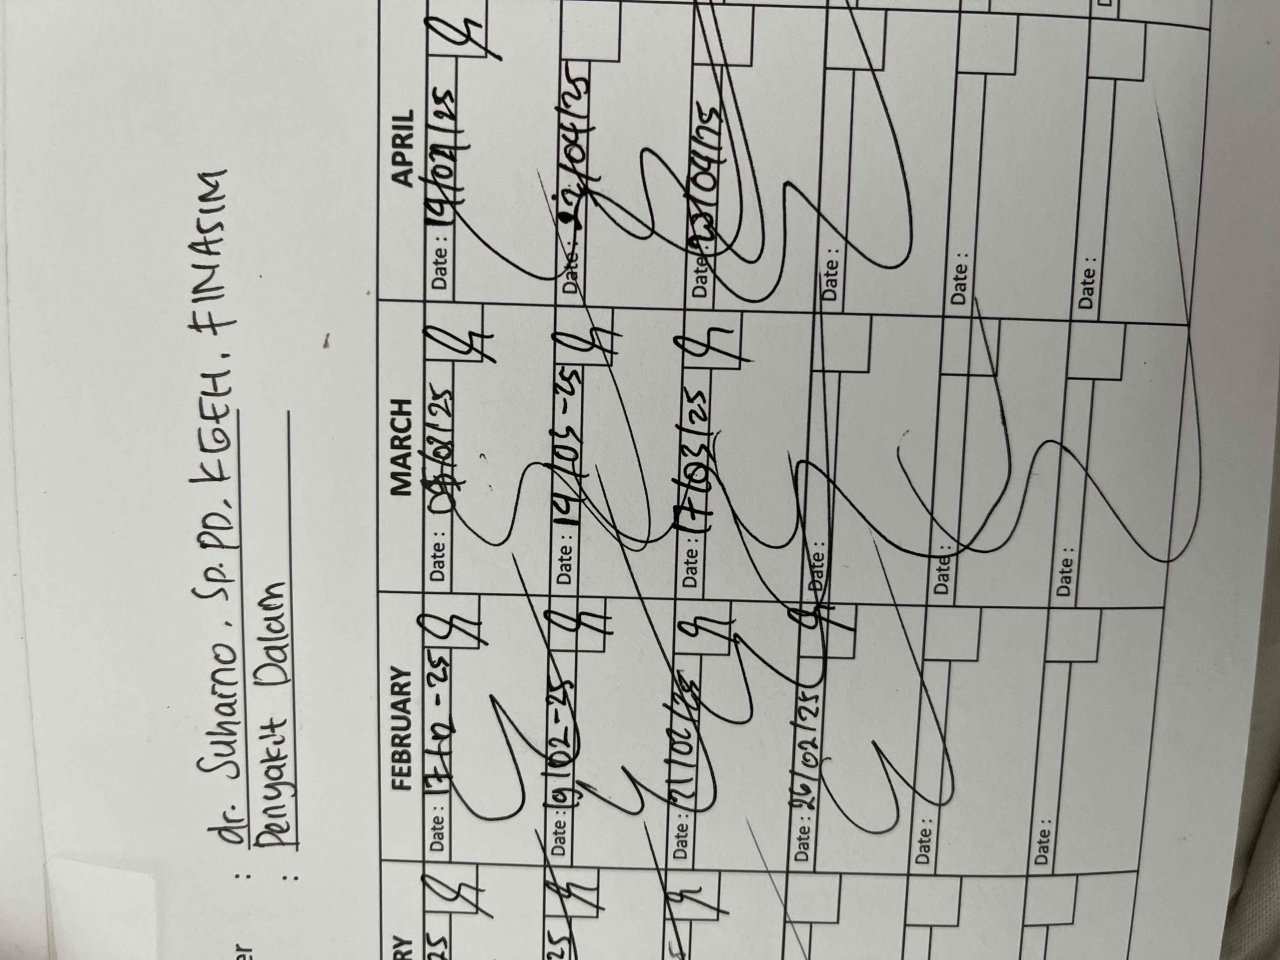 er : dr. Suharno. Sp.PD. KGEH. FINASIM
: Penyakit Dalam
RY FEBRUARY MARCH APRIL
25 Date : 17-02-25 Date : 05/03/25 Date : 14/04/25
25 Date : 19/02-25 Date : 14/03-25 Date : 22/04/25
5 Date : 21/02/25 Date : 17/03/25 Date : 28/04/25
Date : 26/02/25 Date : Date :
Date : Date : Date :
Date : Date : Date :